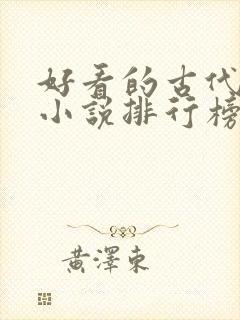 好看的古代
小說排行榜
黃澤東